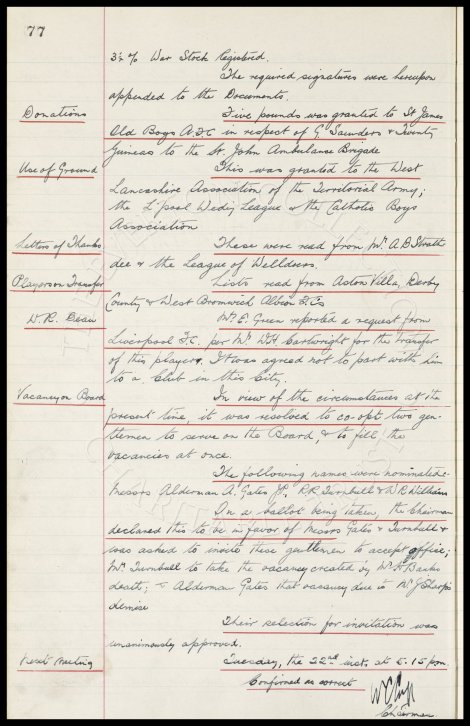 77
3½ % War Stock Registered.
The required signatures were hereupon
appended to the Documents.
Donations
Five pounds was granted to St James
Old Boys A.F.C in respect of G. Saunders & Twenty
Guineas to the St. John Ambulance Brigade
Use of Ground
This was granted to the West
Lancashire Association of the Territorial Army;
the L'pool Wedny League & the Catholic Boys
Association
Letters of Thanks
These were read from Mr. A B Strath
dee & the League of Welldoers.
Players on Transfer
Lists read from Aston Villa, Derby
County & West Bromwich Albion F.Cs
W. R. Dean
Mr. E. Green reported a request from
Liverpool F.C. per Mr W.H. Cartwright for the transfer
of this player. It was agreed not to part with him
to a Club in this City.
Vacancy on Board
In view of the circumstances at the
present time, it was resolved to co-opt two gen-
tlemen to serve on the Board, & to fill, the
vacancies at once.
The following names were nominated:-
Messrs Alderman A. Gates JP. R.R Turnbull & W R Williams
In a ballot being taken, the Chairman
declared this to be in favor of Messrs Gates & Turnbull &
was asked to invite these gentlemen to accept office;
Mr. Turnbull to take the vacancy created by Mr A Banks
death; & Alderman Gates that vacancy due to Mr J Sharp's
demise
Their selection for invitation was
unanimously approved.
Next Meeting
Tuesday, the 22nd inst. at 5.15 p.m.
Confirmed as correct
W C Cuff
Chairman